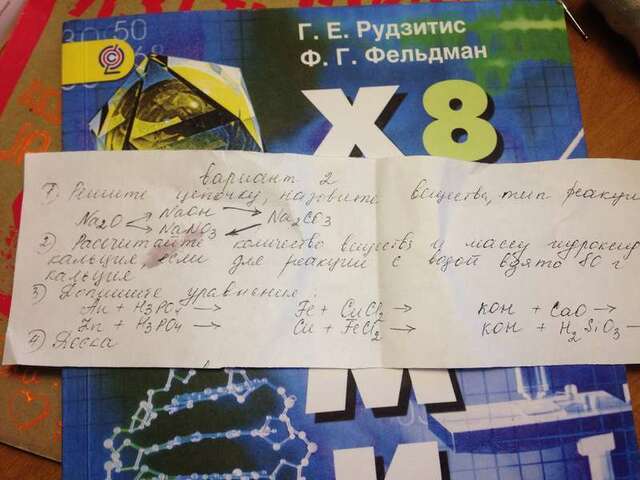 50
Г. Е. Рудзитис
Ф. Г. Фельдман
Х8
вариант 2
1) Решите цепочку, назовите вещества, тип реакци
Na2O → NaOH → Na2CO3
→ NaNO3
2) Рассчитайте количество веществ и массу гидрокси
кальция, если для реакции с водой взято 80 г
кальция
3) Допишите уравнение:
Au + H3PO4 → Fe + CuCl2 → KOH + CaO →
Zn + H3PO4 → Cu + FeCl2 → KOH + H2SiO3 →
4) Доска
М
И